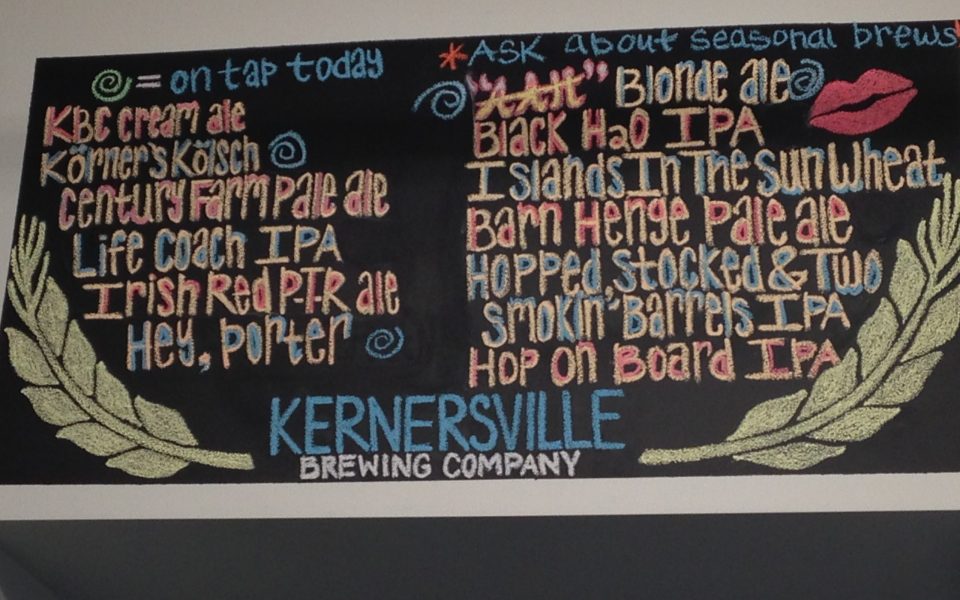 = on tap today
KBC cream ale
Körner's Kölsch
century Farm Pale ale
Life Coach IPA
Irish Red P-I-R ale
Hey, porter
*ASK about seasonal brews*
Blonde ale
Black H2O IPA
Islands In The sun Wheat
Barn Henge Pale ale
Hopped, Stocked & Two
smokin' Barrels IPA
Hop On Board IPA
KERNERSVILLE
BREWING COMPANY